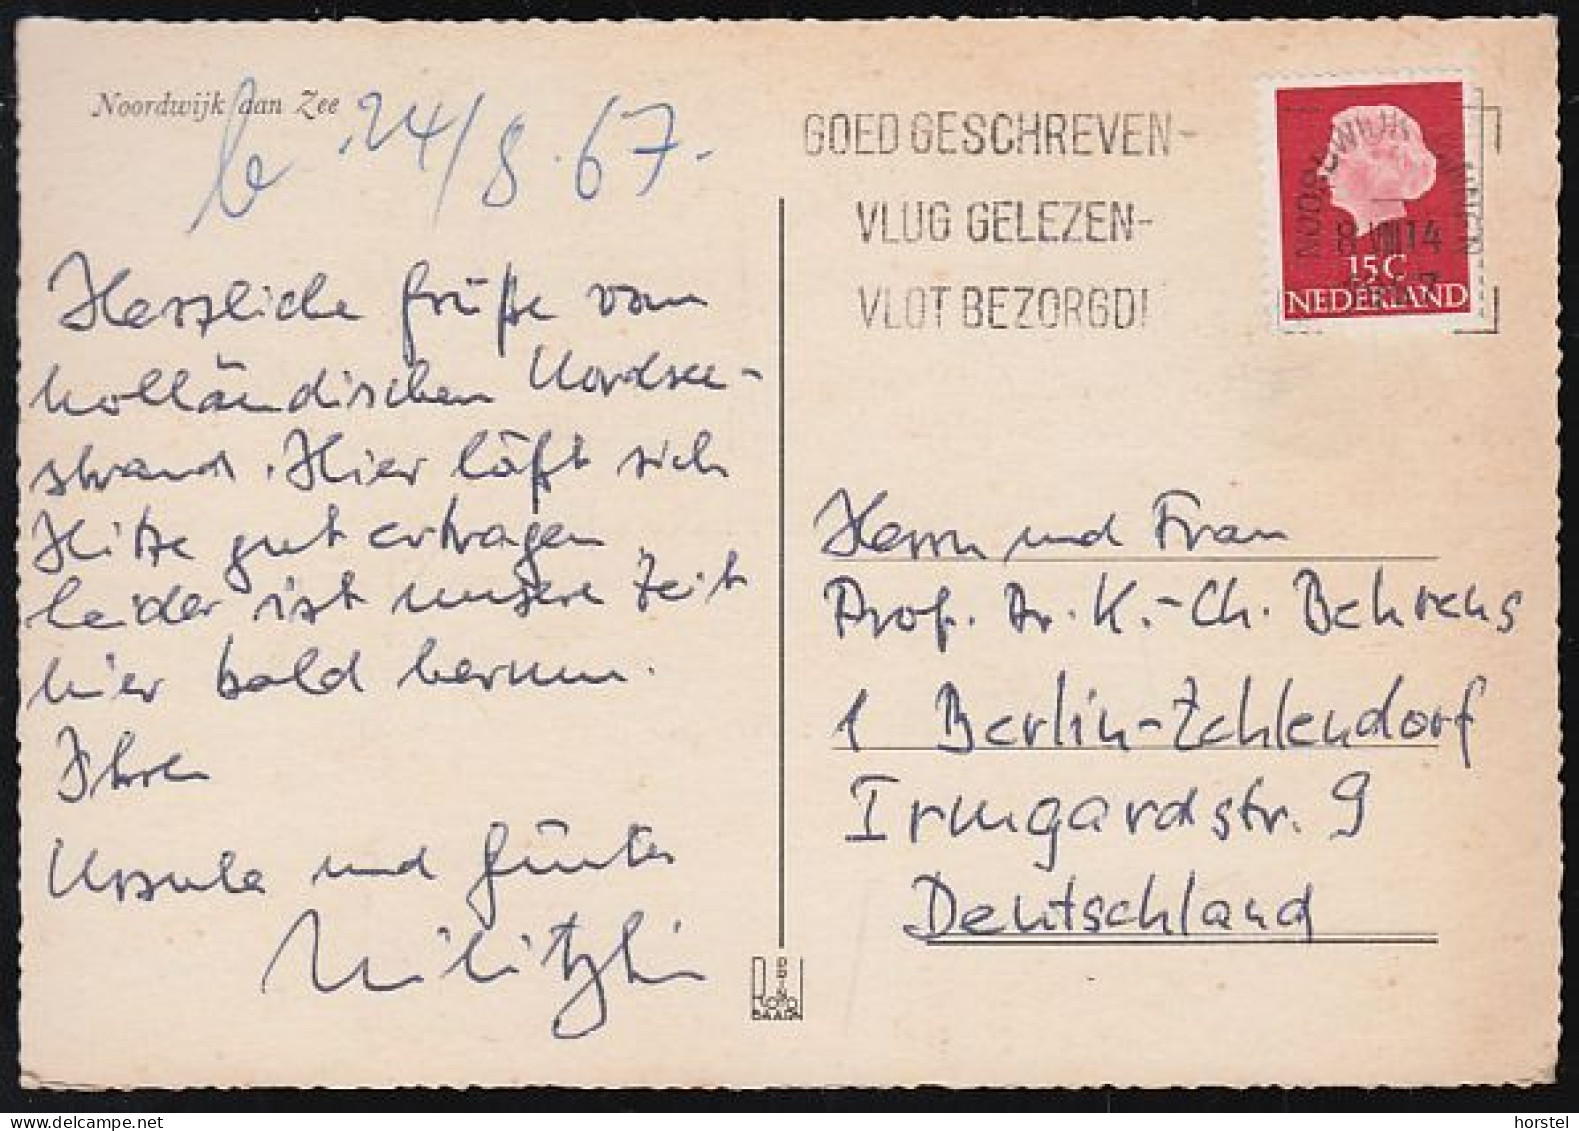 Noordwijk aan Zee
b. 24/8.67.
GOED GESCHREVEN-
VLUG GELEZEN-
VLOT BEZORGD!
NOORDWIJK
8 VIII 14
15 C
NEDERLAND
Herzliche Grüße vom
holländischen Nordsee-
strand. Hier läßt sich
Hitze gut ertragen
leider ist unsere Zeit
hier bald herum.
Ihre
Ursula und Günter
Herrn und Frau
Prof. Dr. K.-Ch. Behrens
1 Berlin-Zehlendorf
Irmgardstr. 9
Deutschland
BAARN
horstel